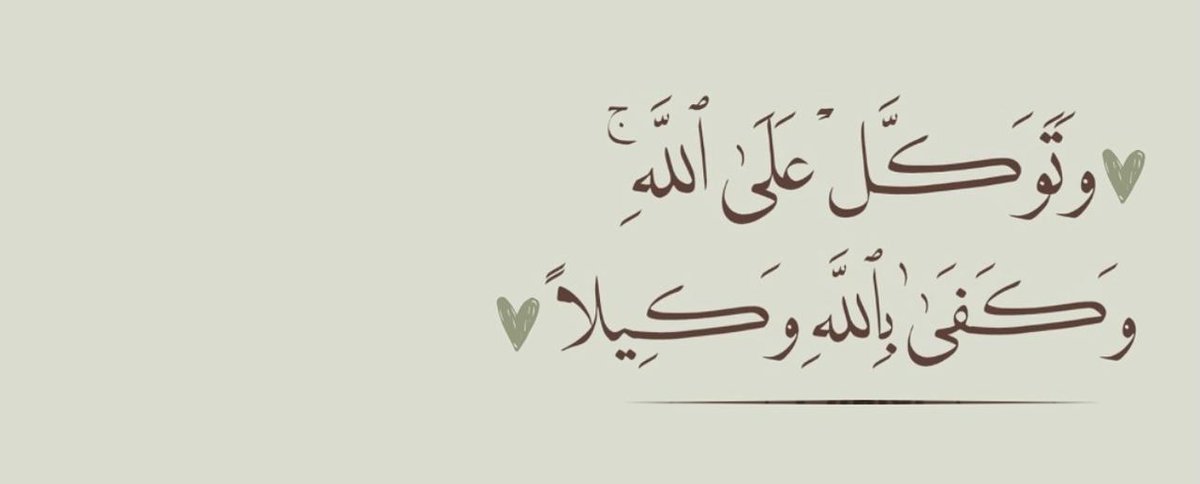 وَتَوَكَّلْ عَلَى ٱللَّهِ ۚ
وَكَفَىٰ بِٱللَّهِ وَكِيلاً